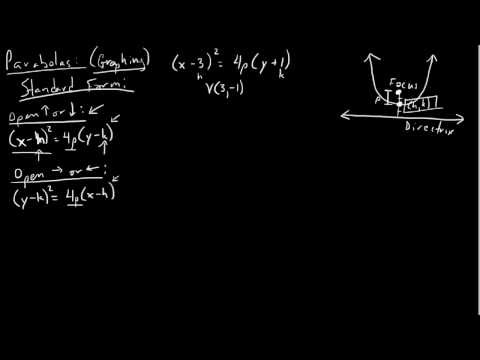 Parabolas: (Graphing)
Standard Form:
Open ↑ or ↓:
(x-h)² = 4p(y-k)
Open → or ←:
(y-k)² = 4p(x-h)
(x-3)² = 4p(y+1)
h k
V(3,-1)
Focus
P
(h,k)
Directrix